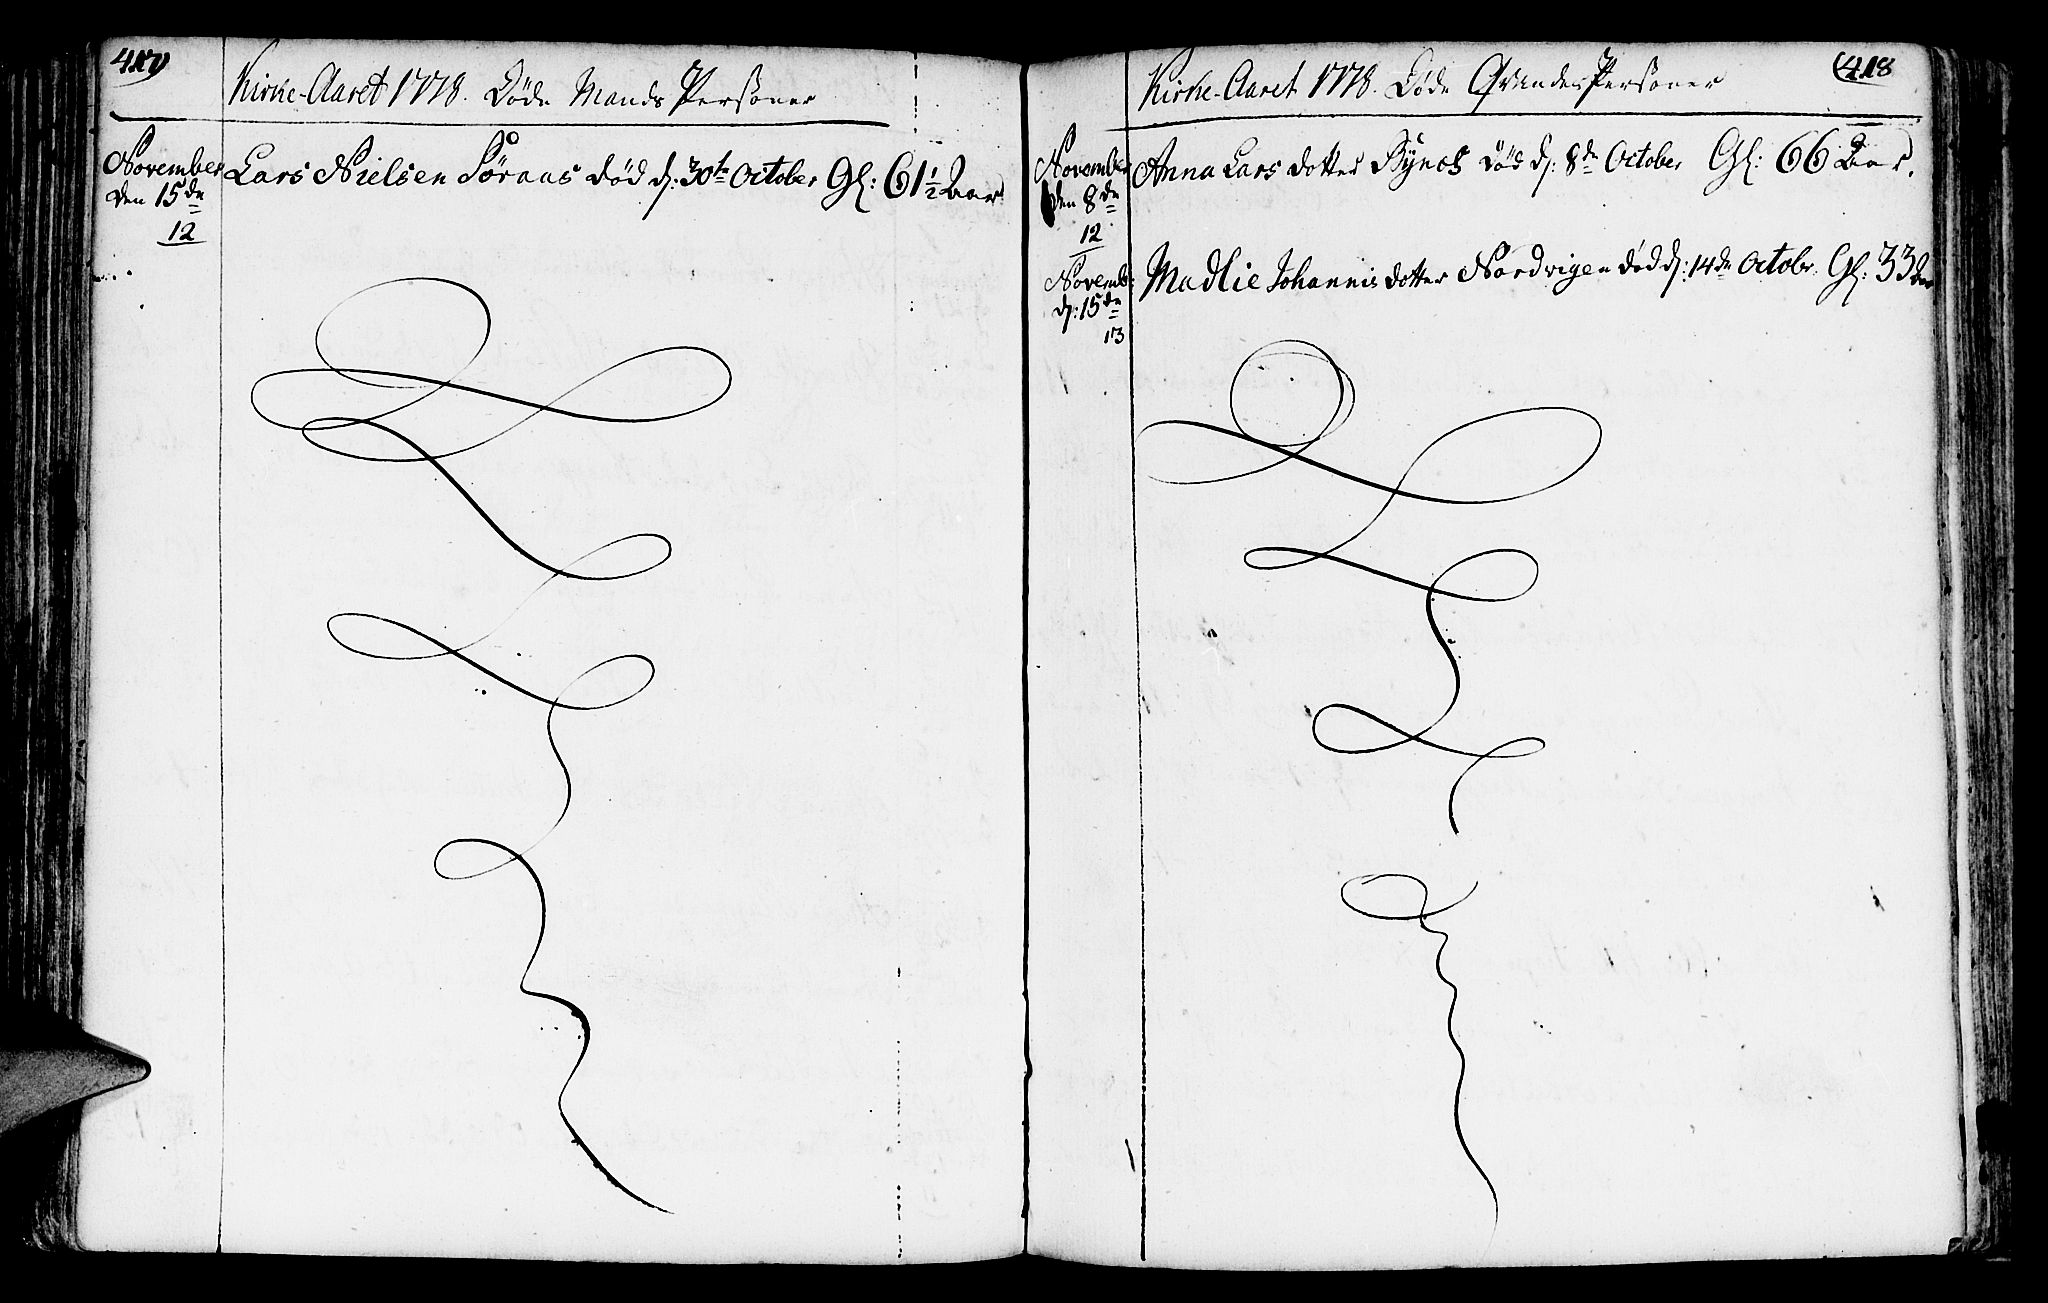 417
Kirke-Aaret 1778. Døde Mands Persøner
November Lars Nielsen Søraas død d: 30te October Gl: 61 1/2 Aar
den 15de
12
418
Kirke-Aaret 1778. Døde Qvindes Persøner
November Anna Lars dotter død d: 8de October Gl: 66 Aar.
den 8de
12
Novemb: Madlie Johannis dotter Nordvigen død d: 14de Octobr. Gl: 33 Aar
d: 15de
13